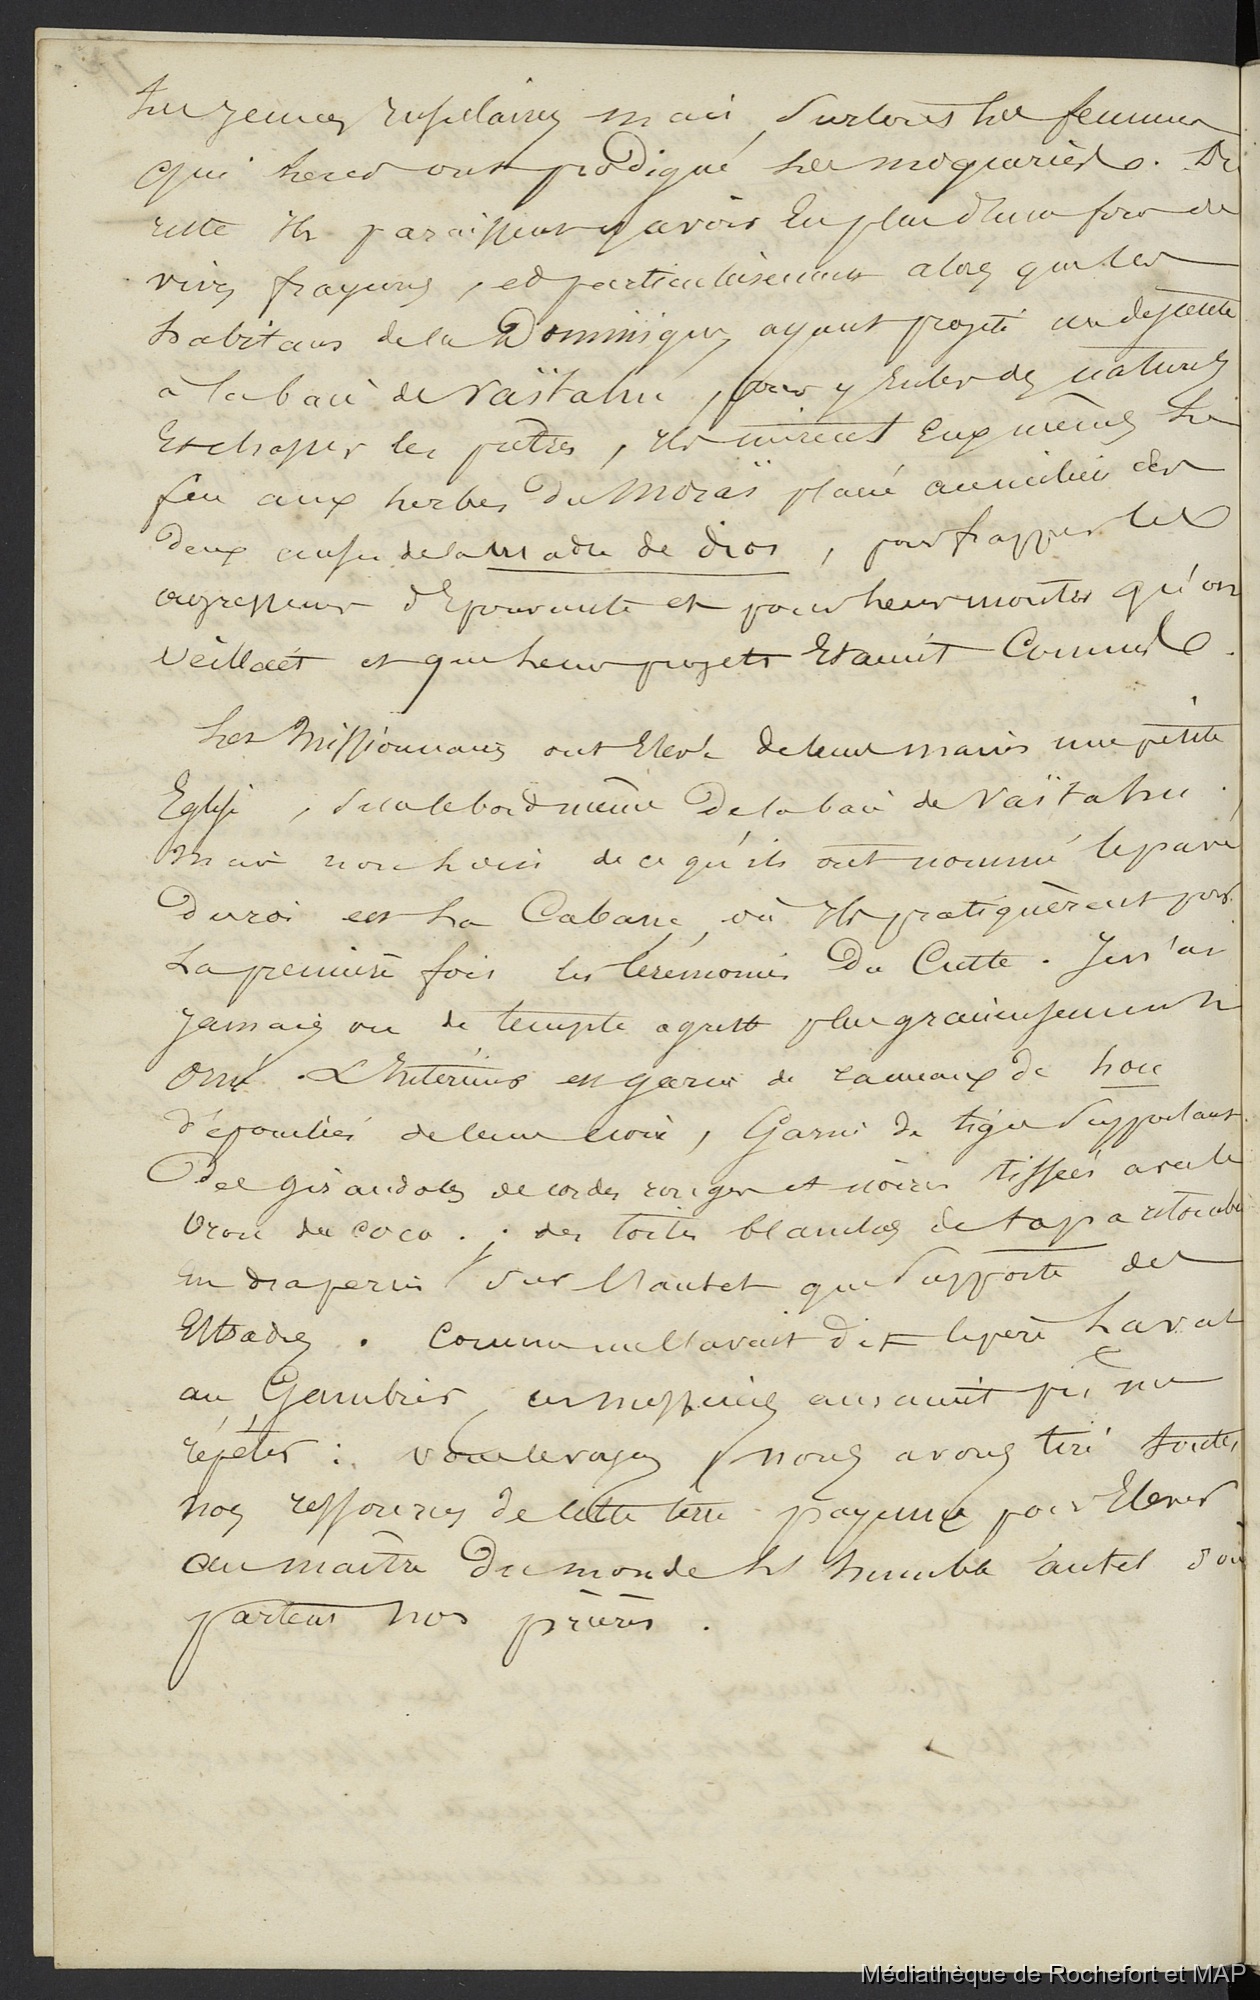 les jeunes insulaires mais surtout les femmes
qui leur ont prodigué les moqueries. Du
reste ils paraissent y avoir eu plus d'une fois de
vives frayeurs, et particulièrement alors que les
habitans de la Dominique, ayant projeté une descente
à la baie de Vaïtahu, pour y enlever des naturels
et chasser les prêtres, ils mirent eux mêmes le
feu aux herbes du Moraï placé au milieu des
deux anses de la madre de dios, pour frapper les
agresseurs d'épouvante et pour leur montrer qu'on
veillait et que leurs projets étaient connus.
Les Missionnaires ont élevé de leurs mains une petite
Eglise, sur le bord même de la baie de Vaïtahu.
mais non loin de ce qu'ils ont nommé le pavé
du roi est la Cabane, où ils pratiquèrent pour
la première fois les cérémonies du Culte. Je n'ai
jamais vu de temple agreste plus gracieusement
orné. L'intérieur est garni de rameaux de hou
dépouillés de leur, Garni de tiges supportant
des girandoles de cordes rouges et noires tissées avec le
brou du coco.; des toiles blanches de tapa retombent
en draperies sur l'autel que supporte des
Estrades. Comme me l'avait dit le père Laval
au Gambier, ces messieurs auraient pu me
répéter: vous le voyez nous avons tiré toutes
nos ressources de cette terre payenne pour élever
au maître du monde l'humble autel d'où
partent nos prières.
Médiathèque de Rochefort et MAP